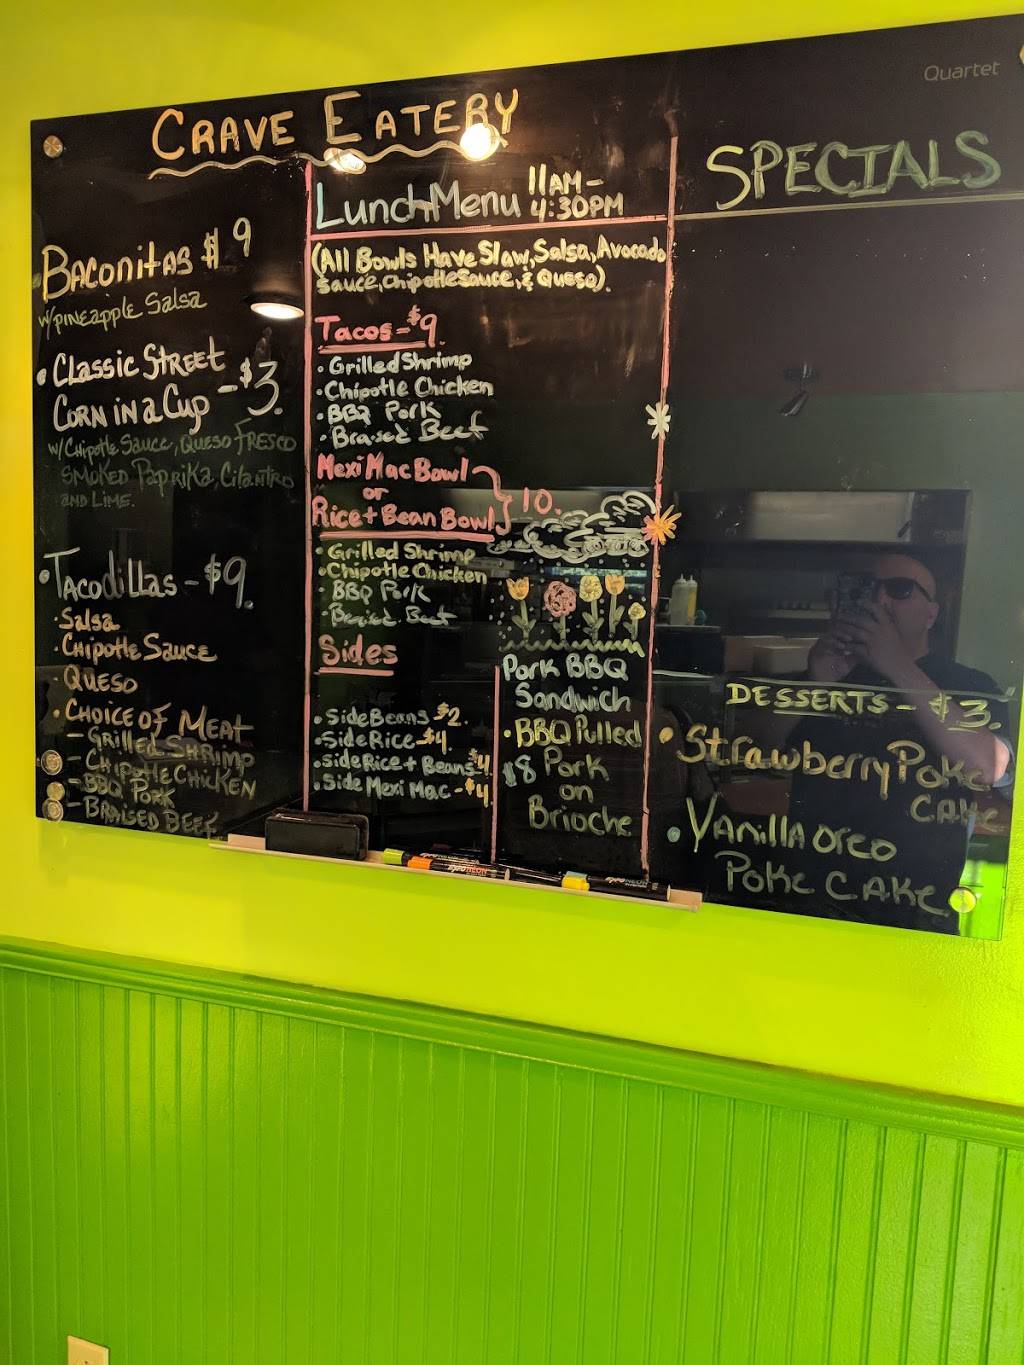 Quartet
CRAVE EATERY
BACONITAS $9
W/PINEAPPLE SALSA
• CLASSIC STREET
CORN IN A CUP - $3.
W/CHIPOTLE SAUCE, QUESO FRESCO
SMOKED PAPRIKA, CILANTRO
AND LIME.
• TACODILLAS - $9.
• SALSA
• CHIPOTLE SAUCE
• QUESO
• CHOICE OF MEAT
- GRILLED SHRIMP
- CHIPOTLE CHICKEN
- BBQ PORK
- BRAISED BEEF
Lunch Menu 11AM -
4:30PM
(All Bowls Have Slaw, Salsa, Avocado
Sauce, Chipotle Sauce, & Queso).
Tacos - $9.
• Grilled Shrimp
• Chipotle Chicken
• BBQ Pork
• Braised Beef
Mexi Mac Bowl
or
Rice + Bean Bowl } 10.
• Grilled Shrimp
• Chipotle Chicken
• BBQ Pork
• Braised Beef
Sides
• Side Beans $2.
• Side Rice - $4.
• Side Rice + Beans $4
• Side Mexi Mac - $4.
Pork BBQ
Sandwich
• BBQ Pulled
$8 Pork
on
Brioche
SPECIALS
DESSERTS - $3.
• Strawberry Poke
Cake
• Vanilla Oreo
Poke Cake